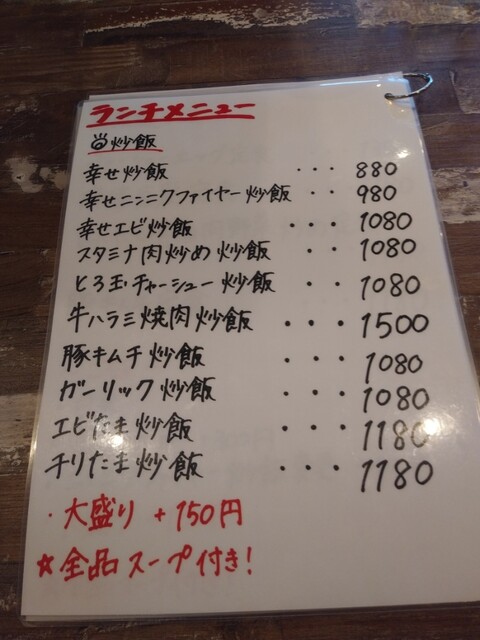 ランチメニュー
炒飯
幸せ炒飯 ・・・ 880
幸せニンニクファイヤー炒飯 ・・ 980
幸せエビ炒飯 ・・・ 1080
スタミナ肉炒め炒飯 ・・ 1080
とろ玉チャーシュー炒飯 ・・ 1080
牛ハラミ焼肉炒飯 ・・・ 1500
豚キムチ炒飯 ・・・ 1080
ガーリック炒飯 ・・・ 1080
エビたま炒飯 ・・・ 1180
チリたま炒飯 ・・・ 1180
・大盛り +150円
☆全品スープ付き!